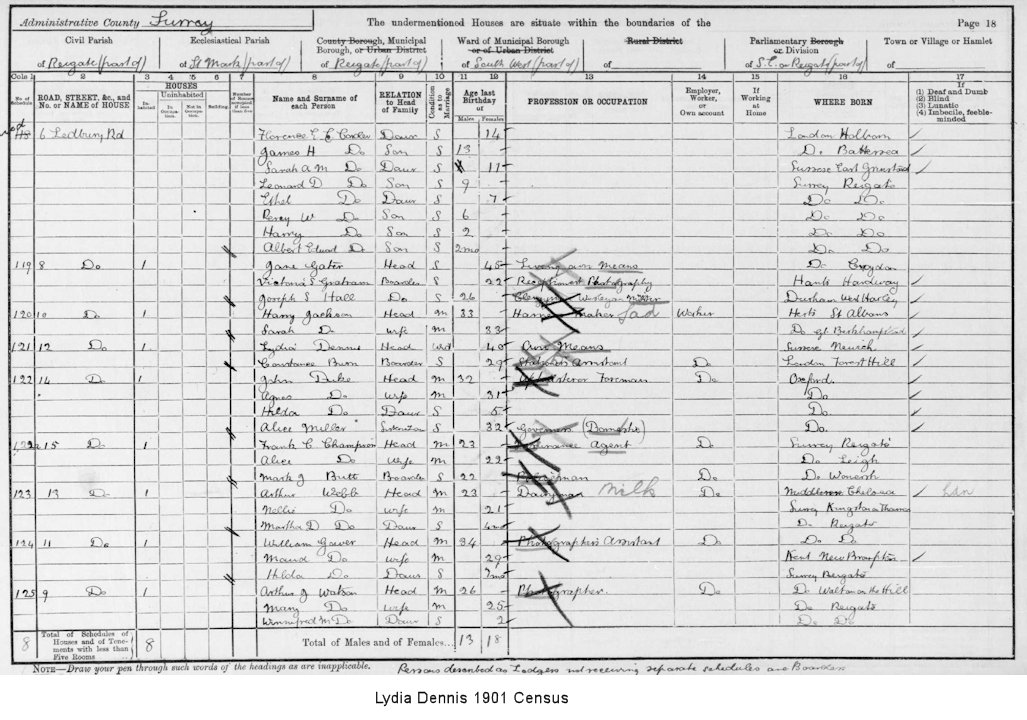 Administrative County Surrey The undermentioned Houses are situate within the boundaries of the Page 18
Civil Parish Ecclesiastical Parish County Borough, Municipal Borough, or Urban District Ward of Municipal Borough or of Urban District Rural District Parliamentary Borough or Division Town or Village or Hamlet
of Reigate (part of) of St Mark (part of) of Reigate (part of) of South West (part of) of of S.E. or Reigate (part of) of
Cols 1 2 3 4 5 6 7 8 9 10 11 12 13 14 15 16 17
No. of Schedule ROAD, STREET, &c., and No. or NAME of HOUSE HOUSES Inhabited Uninhabited In Occupation Not in Occupation Building Number of Rooms occupied if less than five Name and Surname of each Person RELATION to Head of Family Condition as to Marriage Age last Birthday of Males Females PROFESSION OR OCCUPATION Employer, Worker, or Own account If Working at Home WHERE BORN If (1) Deaf and Dumb (2) Blind (3) Lunatic (4) Imbecile, feeble-minded
118 6 Ledbury Rd Florence Daur S 14 London Holborn
James H Do Son S 13 Do Battersea
Sarah A M Do Daur S 11 Sussex East Grinstead
Leonard D Do Son S 9 Surrey Reigate
Ethel Do Daur S 7 Do Do
Percy W Do Son S 6 Do Do
Harry Do Son S 2 Do Do
Albert Edward Do Son S 2mo Do Do
119 8 Do 1 Jane Gater Head S 45 Living own Means Do Croydon
Victoria S Boarder S 22 Receptionist Photography Hants
Joseph S Hall Do S 26 Clergyman Wesleyan Durham West Hartley
120 10 Do 1 Harry Jackson Head M 33 Harness Maker Sad Worker Herts St Albans
Sarah Do Wife M 33 Do Gt Berkhampstead
121 12 Do 1 Lydia Dennis Head Wd 40 Own Means Sussex
Constance Burn Boarder S 29 Assistant Do London Forest Hill
122 14 Do 1 John Duke Head M 32 Foreman Do Oxford
Agnes Do Wife M 31 Do
Hilda Do Daur S 5 Do
Alice Miller S 32 Governess (Domestic) Do
122a 15 Do 1 Frank C Champion Head M 23 Insurance Agent Do Surrey Reigate
Alice Do Wife M 22 Do Leigh
Mark J Butt Boarder S 22 Policeman Do Do Wonersh
123 13 Do 1 Arthur Webb Head M 23 Dairyman Milk Do Middlesex Chelsea Lon
Nellie Do Wife M 21 Surrey Kingston on Thames
Martha D Do Daur S Do Reigate
124 11 Do 1 William Gower Head M 34 Photographers Assistant Do Do Do
Maud Do Wife M 29 Kent New Brompton
Hilda Do Daur S 7mo Surrey Reigate
125 9 Do 1 Arthur J Watson Head M 26 Photographer Do Do Walton on the Hill
Mary Do Wife M 25 Do Reigate
Winnifred M Do Daur S 2 Do Do
8 Total of Schedules of Houses and of Tenements with less than Five Rooms 8 Total of Males and of Females... 13 18
NOTE—Draw your pen through such words of the headings as are inapplicable. Persons described as Lodgers not receiving separate schedules are Boarders
Lydia Dennis 1901 Census